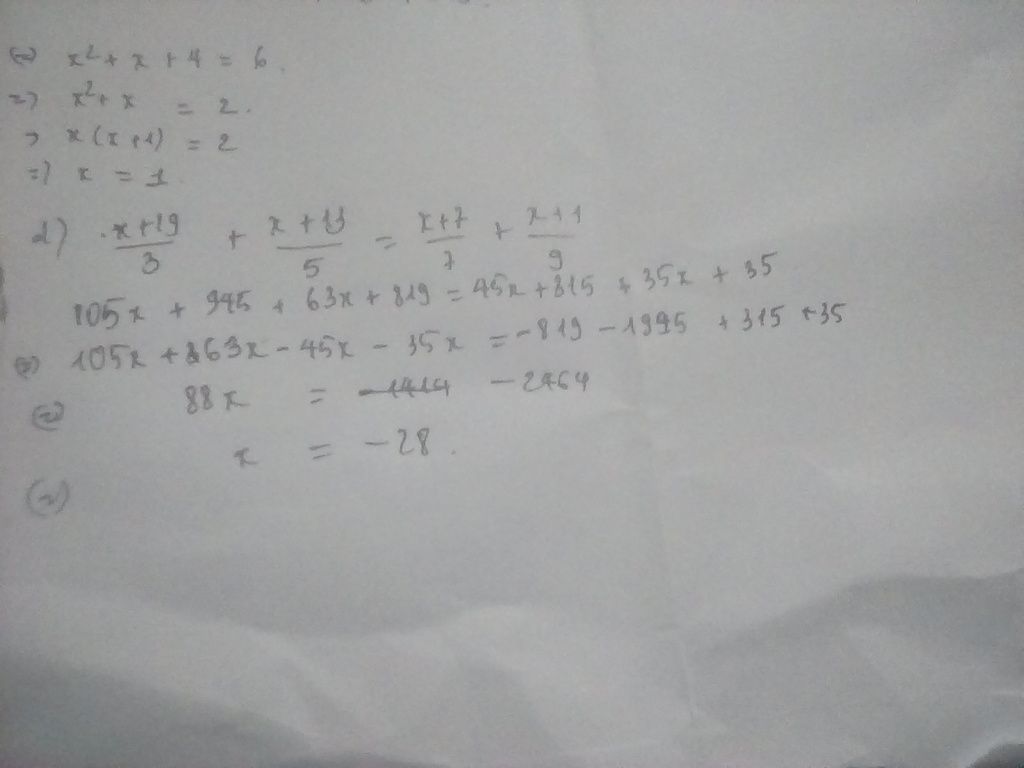 (=) x² + x + 4 = 6.
=) x² + x = 2.
> x(x+1) = 2
=) x = 1.
d) x+19/3 + x+13/5 = x+7/7 + x+1/9
105x + 945 + 63x + 819 = 45x + 315 + 35x + 35
(=) 105x + 363x - 45x - 35x = -819 - 1995 + 315 + 35
(=) 88x = -2464
x = -28.
(=)